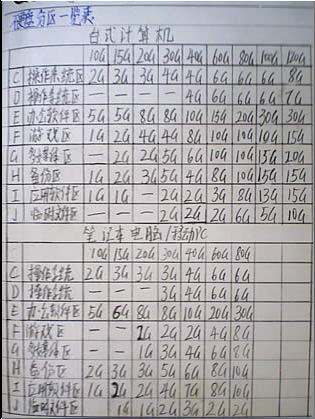 硬盘分区一览表
台式计算机
10G 15G 20G 30G 40G 60G 80G 100G 120G
C 操作系统区 2G 3G 3G 4G 4G 6G 6G 6G 8G
D 操作系统区 — — — — 4G 6G 6G 6G 7G
E 办公软件区 5G 5G 8G 8G 10G 15G 20G 30G 30G
F 游戏区 1G 2G 4G 4G 8G 10G 10G 10G 15G
G 多媒体区 — — 2G 2G 5G 6G 10G 10G 15G 20G
H 备份区 1G 2G 3G 5G 4G 8G 10G 15G 15G
I 应用软件区 1G 1G — 2G 2G 3G 8G 13G 15G
J 临时文件区 — — — 2G 2G 2G 6G 5G 10G
笔记本电脑/移动PC
10G 15G 20G 30G 40G 60G 80G
C 操作系统 2G 3G 3G 3G 4G 6G 6G
D 操作系统 — — — 3G 4G 6G 6G
E 办公软件区 5G 6G 8G 8G 10G 20G 30G
F 游戏区 — — 2G 2G 2G 4G 8G
G 多媒体区 — — 1G 3G 4G 6G 8G
H 备份区 2G 3G 3G 5G 6G 8G
I 应用软件区 1G 2G 2G 4G 7G 8G 10G
J 临时文件区 1G 1G 2G 3G 2G 2G